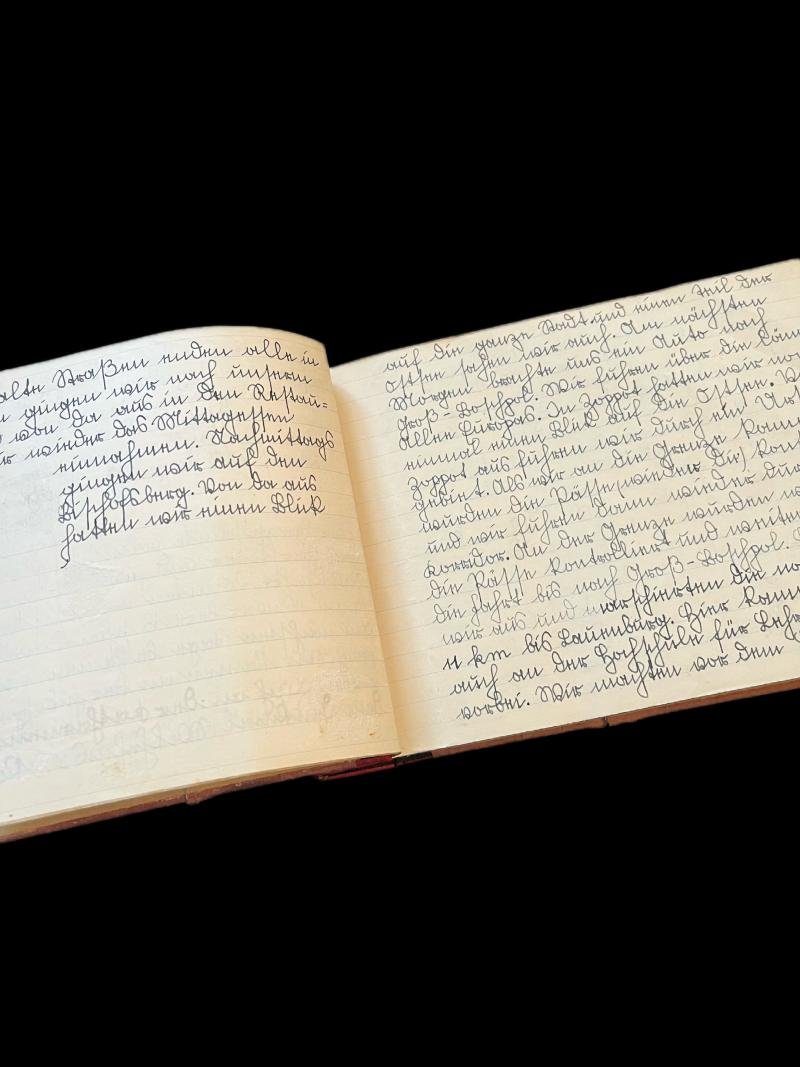 alte Straßen enden alle in
gingen wir nach unserm
von da aus in den Restau=
wir wieder das Mittagessen
einnahmen. Nachmittags
gingen wir auf den
Bischofsburg. Von da aus
hatten wir einen Blick
auf die ganze Stadt und einen Teil der
Ostsee sahen wir auch. Am nächsten
Morgen brachte uns ein Auto nach
Groß-Boschpol. Wir fuhren über die
Allee Europas. In Zoppot hatten wir
einmal einen Blick auf die Ostsee.
Zoppot aus fuhren wir durch ein
gebiet. Als wir an die Grenze
wurden die Pässe (wieder die)
und wir fuhren dann wieder
Korridor. An der Grenze wurden
die Pässe kontrolliert und
die Fahrt bis nach Groß-Boschpol.
wir aus und marschierten die
11 km bis Lauenburg. Hier
auch an der Hochschule für
vorbei. Wir machten vor dem